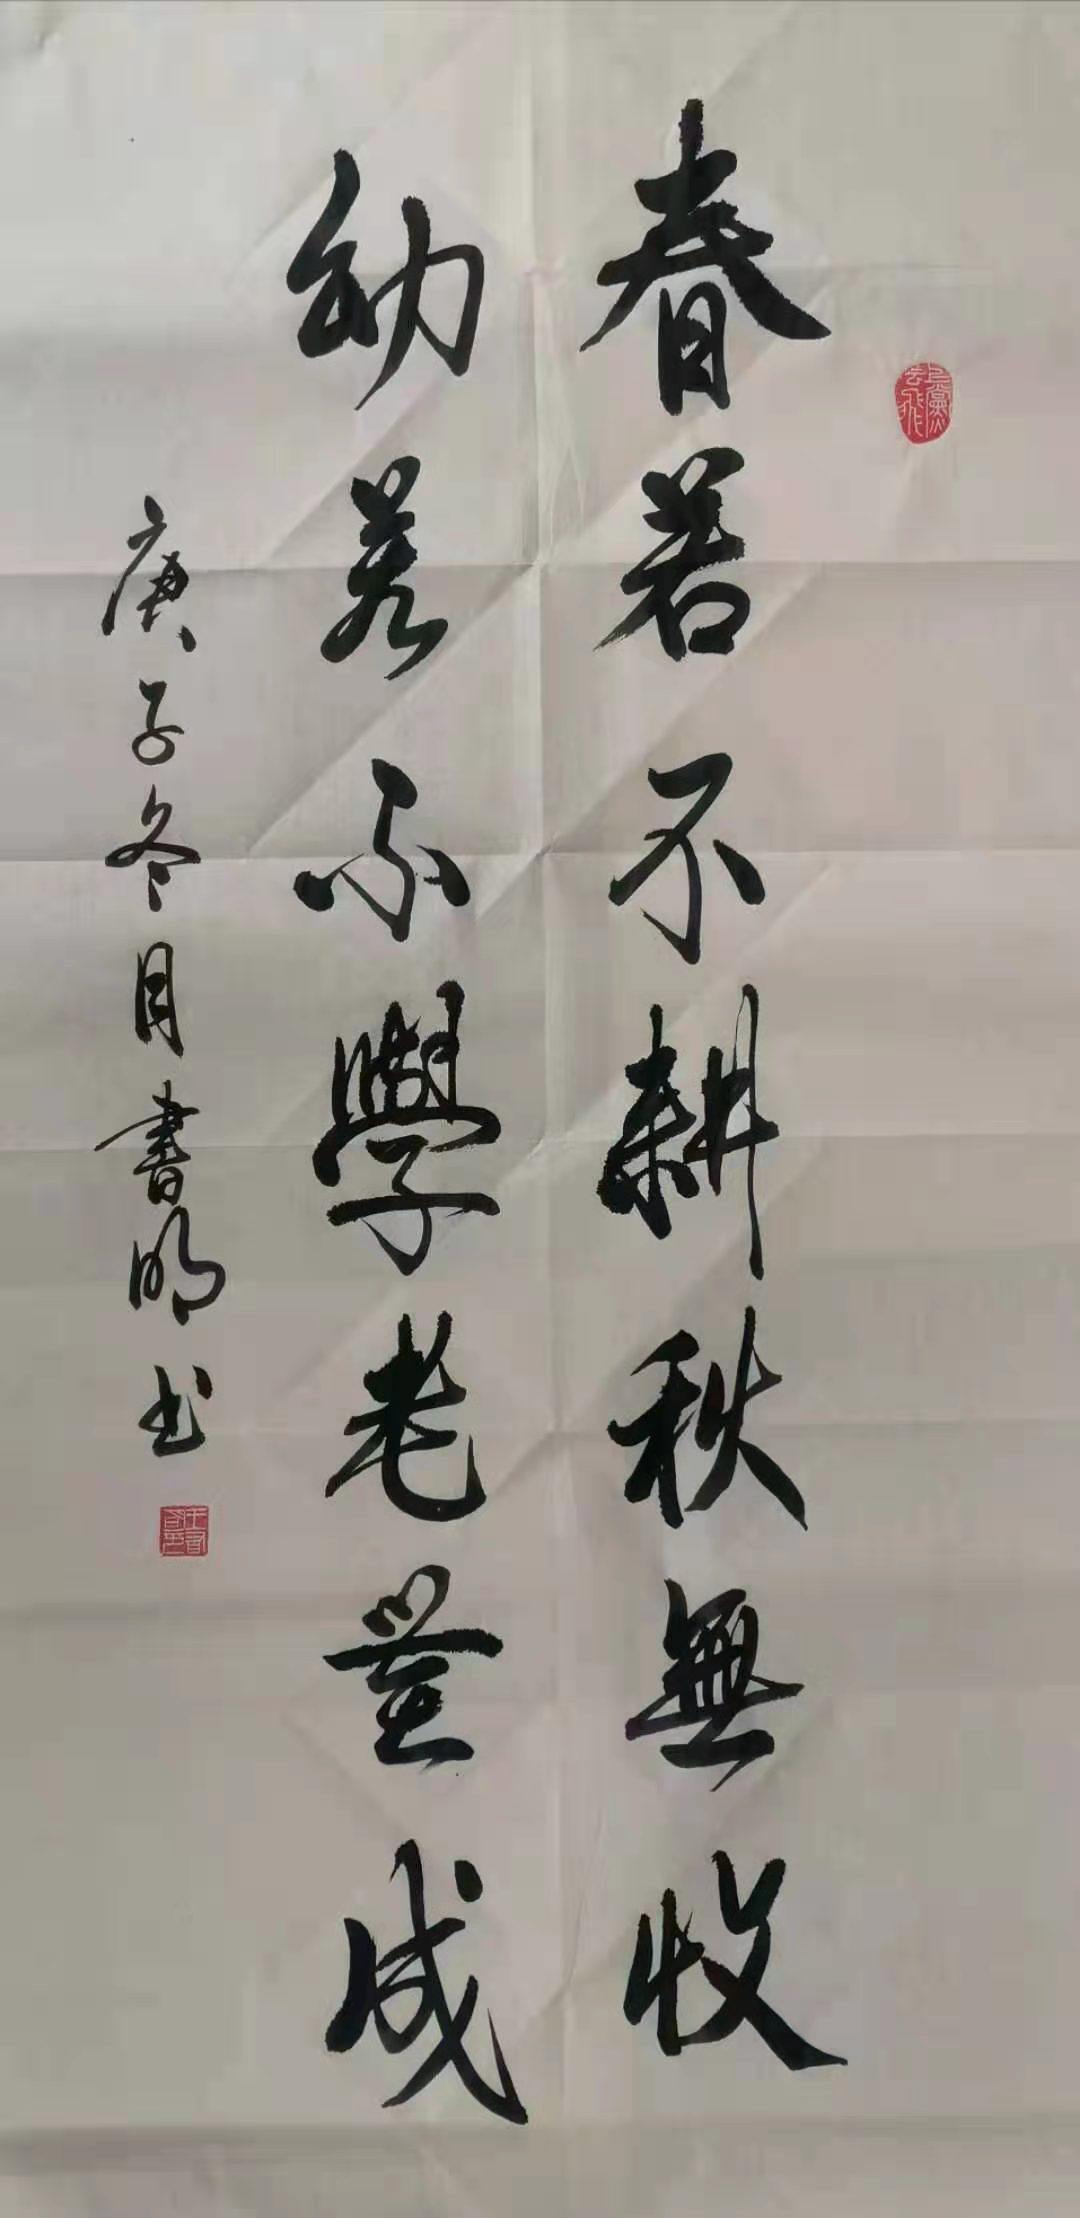 春若不耕秋無收
幼若不學老無成
庚子冬月書明书